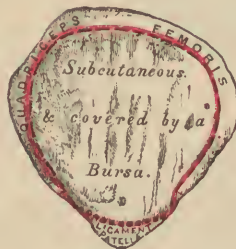 QUADRICEPS FEMORIS
Subcutaneous.
& covered by a
Bursa.
LIGAMENT
PATELLÆ